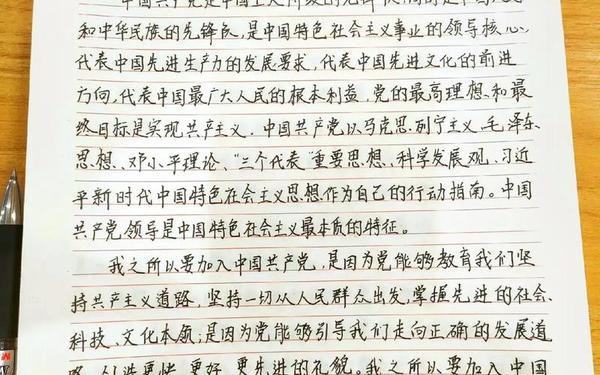 中国共产党是中国工人阶级的先锋队,同时是中国人民
和中华民族的先锋队,是中国特色社会主义事业的领导核心,
代表中国先进生产力的发展要求,代表中国先进文化的前进
方向,代表中国最广大人民的根本利益。党的最高理想和最
终目标是实现共产主义。中国共产党以马克思列宁主义、毛泽东
思想、邓小平理论、"三个代表"重要思想、科学发展观、习近
平新时代中国特色社会主义思想作为自己的行动指南。中国
共产党领导是中国特色社会主义最本质的特征。
我之所以要加入中国共产党,是因为党能够教育我们坚
持共产主义道路,坚持一切从人民群众出发,掌握先进的社会、
科技、文化本领;是因为党能够引导我们走向正确的发展道
路,创造更快、更好、更先进的礼貌。我之所以要加入中国